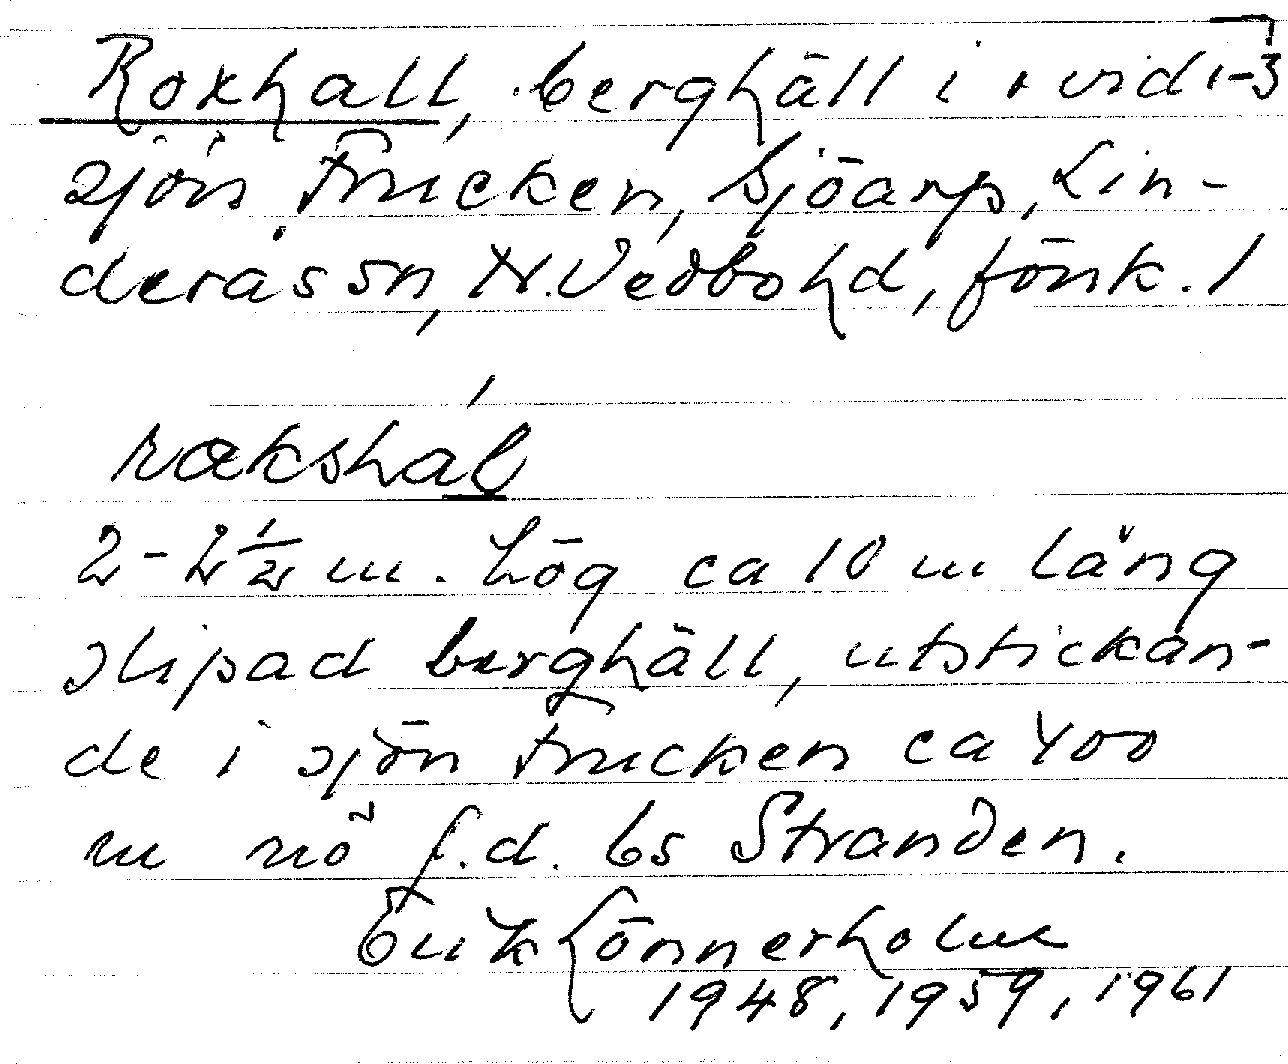 Roxhall, berghäll i o vid 1-3
sjön Trucken, Sjöarp, Lin-
derås sn, N. Vedbo hd, Jönk. l
rakshal
2-2½ m. hög ca 10 m lång
slipad berghäll, utstickan-
de i sjön Trucken ca 400
m nö f.d. bs Stranden.
Erik Lönnerholm
1948, 1959, 1961